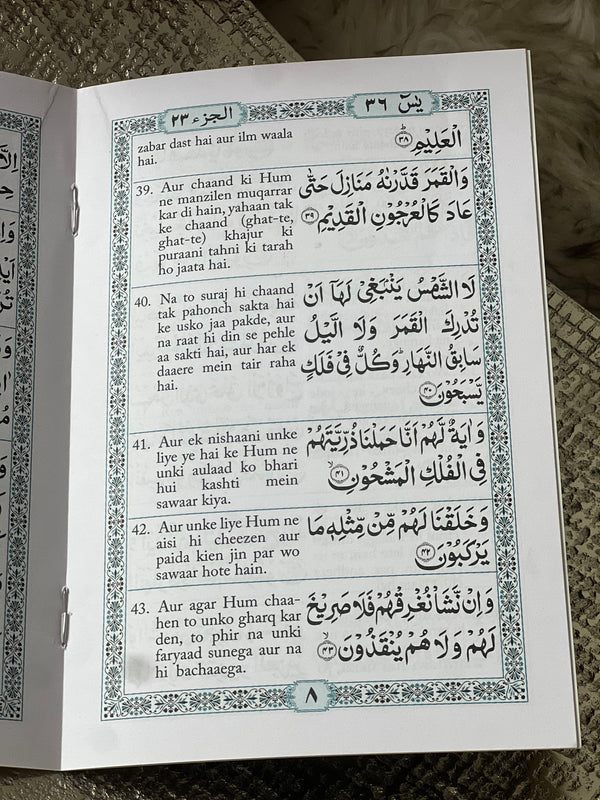 الجزء ٢٣
يٰسٓ ٣٦
zabar dast hai aur ilm waala
hai.
الْعَلِيْمِ ﴿٣٨﴾
39. Aur chaand ki Hum
ne manzilen muqarrar
kar di hain, yahaan tak
ke chaand (ghat-te,
ghat-te) khajur ki
puraani tahni ki tarah
ho jaata hai.
وَالْقَمَرَ قَدَّرْنٰهُ مَنَازِلَ حَتّٰى
عَادَ كَالْعُرْجُوْنِ الْقَدِيْمِ ﴿٣٩﴾
40. Na to suraj hi chaand
tak pahonch sakta hai
ke usko jaa pakde, aur
na raat hi din se pehle
aa sakti hai, aur har ek
daaere mein tair raha
hai.
لَا الشَّمْسُ يَنْۢبَغِيْ لَهَاۤ اَنْ
تُدْرِكَ الْقَمَرَ وَلَا الَّيْلُ
سَابِقُ النَّهَارِ ؕ وَكُلٌّ فِيْ فَلَكٍ
يَّسْبَحُوْنَ ﴿٤٠﴾
41. Aur ek nishaani unke
liye ye hai ke Hum ne
unki aulaad ko bhari
hui kashti mein
sawaar kiya.
وَاٰيَةٌ لَّهُمْ اَنَّا حَمَلْنَا ذُرِّيَّتَهُمْ
فِي الْفُلْكِ الْمَشْحُوْنِ ﴿٤١﴾
42. Aur unke liye Hum ne
aisi hi cheezen aur
paida kien jin par wo
sawaar hote hain.
وَخَلَقْنَا لَهُمْ مِّنْ مِّثْلِهٖ مَا
يَرْكَبُوْنَ ﴿٤٢﴾
43. Aur agar Hum chaa-
hen to unko gharq kar
den, to phir na unki
faryaad sunega aur na
hi bachaaega.
وَاِنْ نَّشَاْ نُغْرِقْهُمْ فَلَا صَرِيْخَ
لَهُمْ وَلَا هُمْ يُنْقَذُوْنَ ﴿٤٣﴾
٨